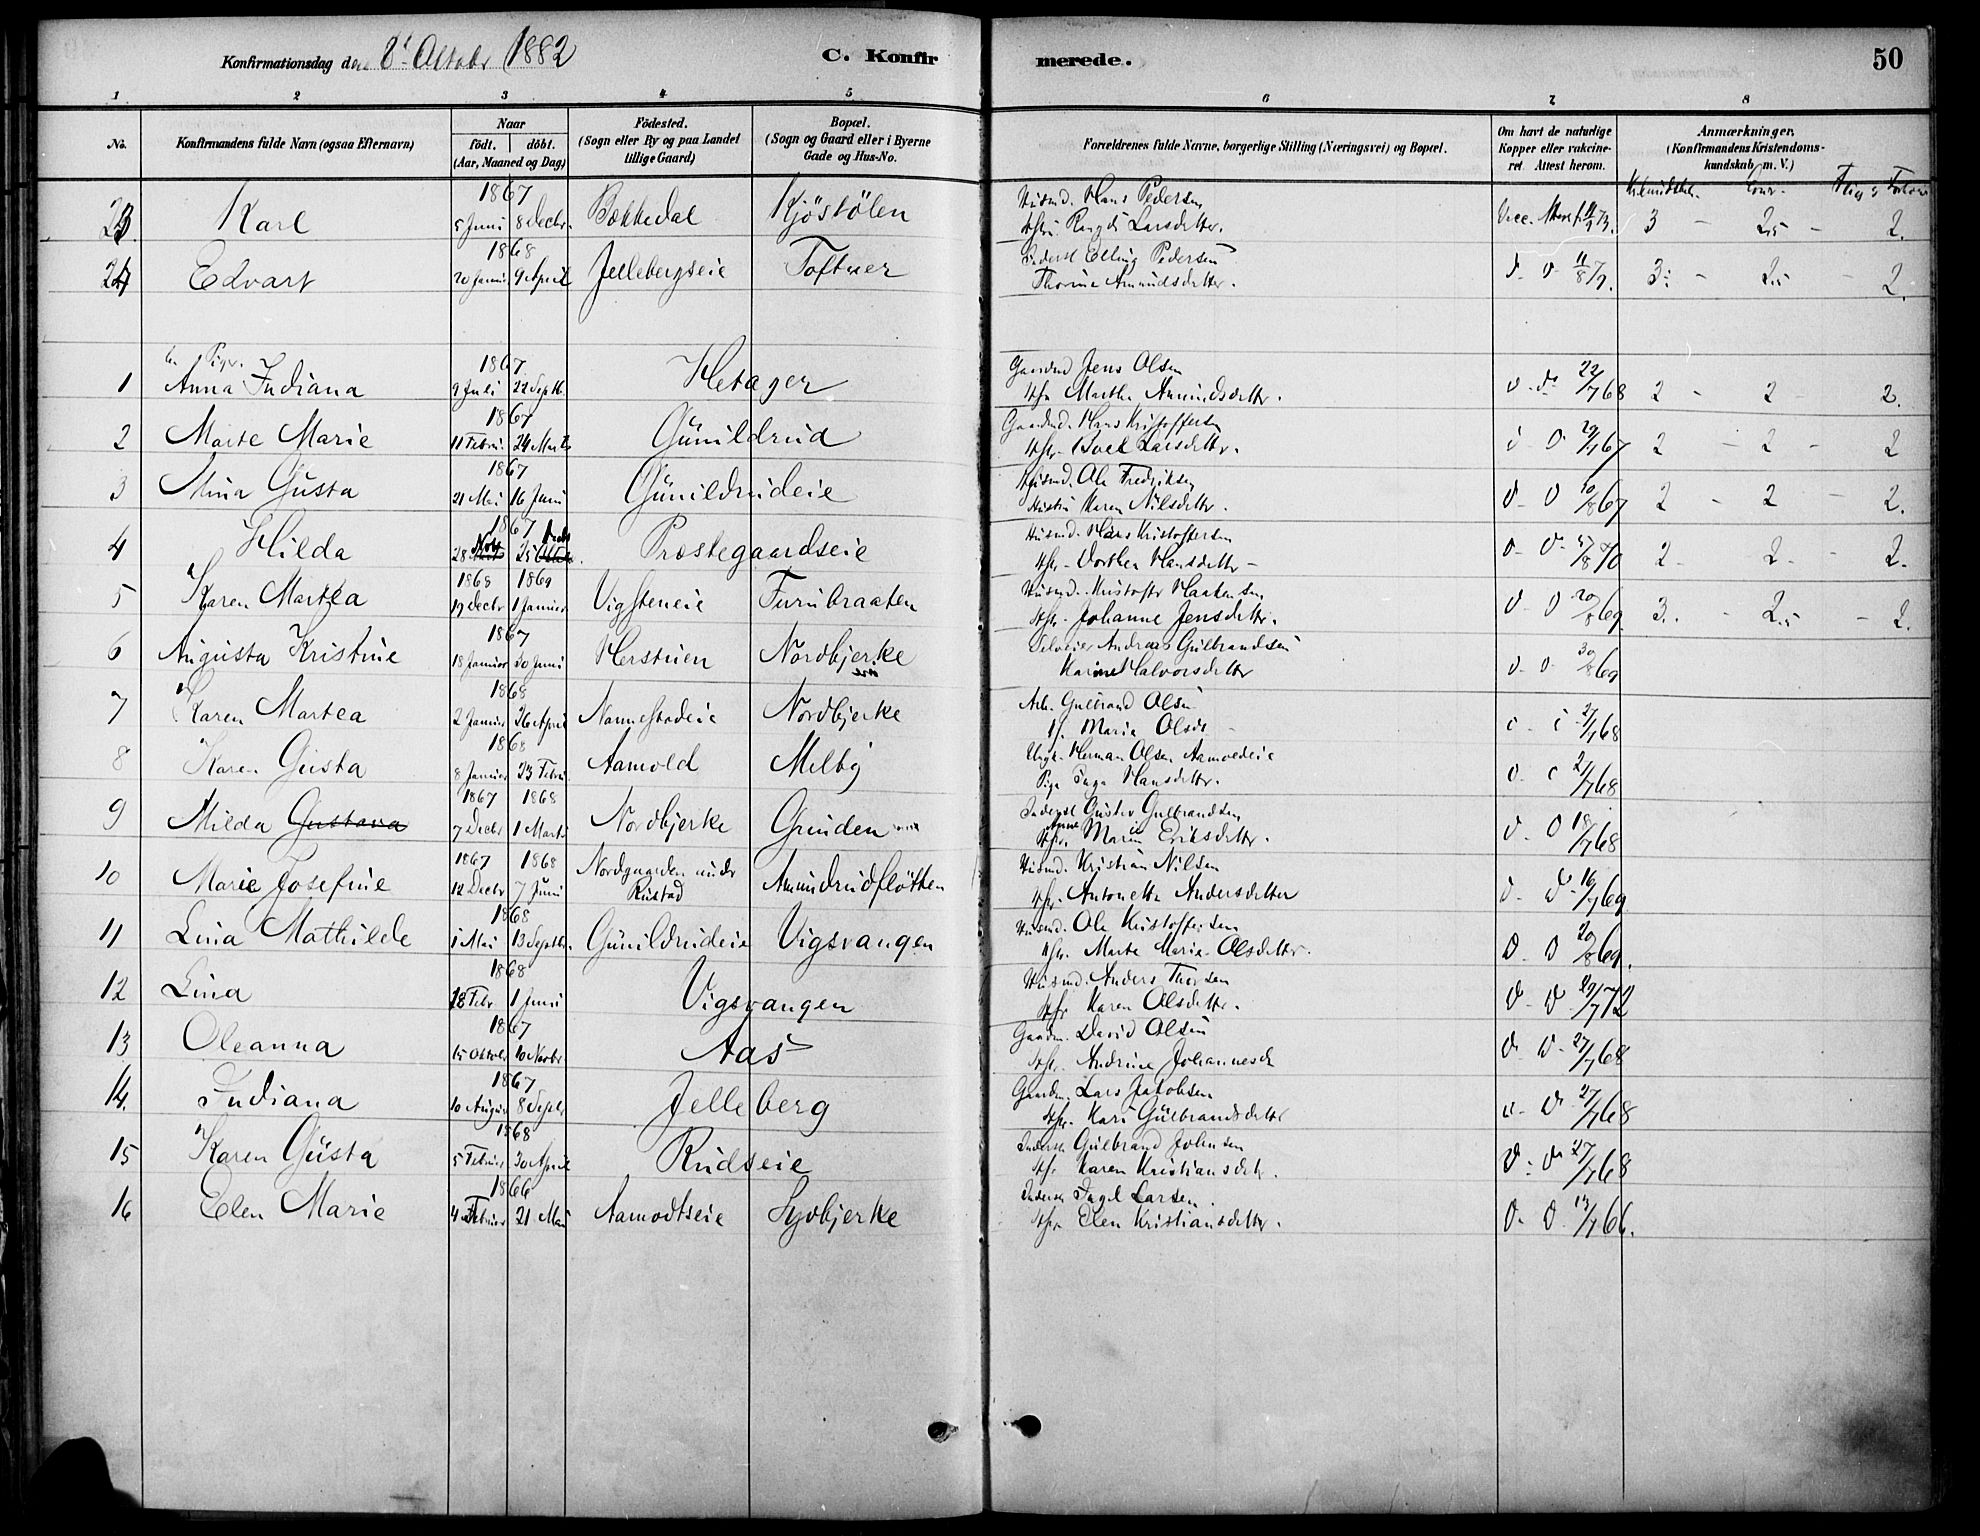 Konfirmationsdag den 8' Oktobr 1882
C. Konfirmerede.
50
1 2 3 4 5 6 7 8
No.
Konfirmandens fulde Navn (ogsaa Efternavn)
Naar
födt. döbt.
(Aar, Maaned og Dag)
Födested.
(Sogn eller By og paa Landet tillige Gaard)
Bopæl.
(Sogn og Gaard eller i Byerne Gade og Hus-No.
Forældrenes fulde Navne, borgerlige Stilling (Næringsvei) og Bopæl.
Om havt de naturlige Kopper eller vakcineret. Attest herom.
Anmærkninger.
(Konfirmandens Kristendomskundskab m. V.)
23. Karl 1867 5 Juni 8 Decbr. Bekkedal Kjöstölen Husmd. Hans Pedersen
Hstru Rangdi Larsdatter. 3 - 2.5 - 2.
24 Edvart 1868 20 Januar 9 April Jellebergseie Toftner Inderst Elling Pedersen
Thorine Amundsdatter. 3: - 2.5 - 2.
Piger.
1 Anna Indiana 1867 9 Juli 22 Septb. Hetager Gaardmd Jens Olsen
Hstr Marthe Amundsdttr. 22/7 68 2 - 2 - 2.
2 Marte Marie 1867 11 Februar 24 Marts Gunildrud Gaardmd. Hans Kristoffersen
Hstr. Boel Larsdatter. 29/7 67 2 - 2 - 2
3 Mina Gusta 1867 21 Mai 16 Juni Gunildrudeie Husmd. Ole Fredriksen
Hustru Karen Nilsdttr. 10/8 67 2 - 2 - 2.
4 Hilda 1867 28 Novb 25 Decb Præstegaardseie Husmd. Hans Kristoffersen
Hstr. Dorthea Hansdatter - 5/8 70 2 - 2 - 2.
5 Karen Martea 1868 1869 19 Decbr 1 Januar Vigsteneie Furubraaten Husmd. Kristoffer Haakensen
Hstr. Johanne Jensdatter. 20/8 69 3. - 2.5 - 2.
6 Augusta Kristine 1867 18 Januar 30 Juni Herstuen Nordbjerke Selveier Andreas Gulbrandsen
Karine Halvorsdatter 30/8 69
7 Karen Martea 1868 2 Januar 26 April Nannestadeie Nordbjerke Arb. Gulbrand Olsen
H. Maria Olsdr 27/7 68
8 Karen Gusta 1868 8 Januar 23 Febru. Aamold Melby Ungk. Herman Olsen Aamoldeie
Pige Inga Hansdatter. 27/7 68
9 Milda Gustava 1867 1868 7 Decbr 1 Marts Nordbjerke Grinden Inderst Gustav Gulbrandsen
Hstr. Anne Marie Eriksdatter. 18/7 68
10 Marie Josefine 1867 1868 12 Decbr 7 Juni Nordgaarden under Rustad Amundrudfløtten Husmd. Kristian Nilsen
Hstr. Antonette Andersdatter 16/7 69
11 Lina Mathilde 1868 1 Mai 13 Septbr. Gunildrudeie Vigsvangen Husmd. Ole Kristoffersen
Hstr. Marte Marie Olsdatter. 20/8 69.
12 Lina 1868 18 Febr 1 Juni Vigsvangen Husmd. Anders Thorsen
Hstr Karen Olsdatter. 29/7 72
13 Oleanna 1867 15 Oktobr 10 Novbr Aas Gaardm. David Olsen
Hstr. Andrine Johannesd. 27/7 68
14. Indiana 1867 10 August 8 Septbr Jelleberg Gaardm. Lars Jakobsen
Hstr. Kari Gulbrandsdatter 27/7 68
15 Karen Gusta 1868 5 Februar 30 April Rudseie Inderst Gulbrand Johnsen
Hstr Karen Kristiansdatt. 27/7 68
16 Elen Marie 1866 4 Februar 21 Mai Aamodtseie Sydbjerke Inderst Ingel Larsen.
Hstr Elen Kristiansdatter. 13/7 66.